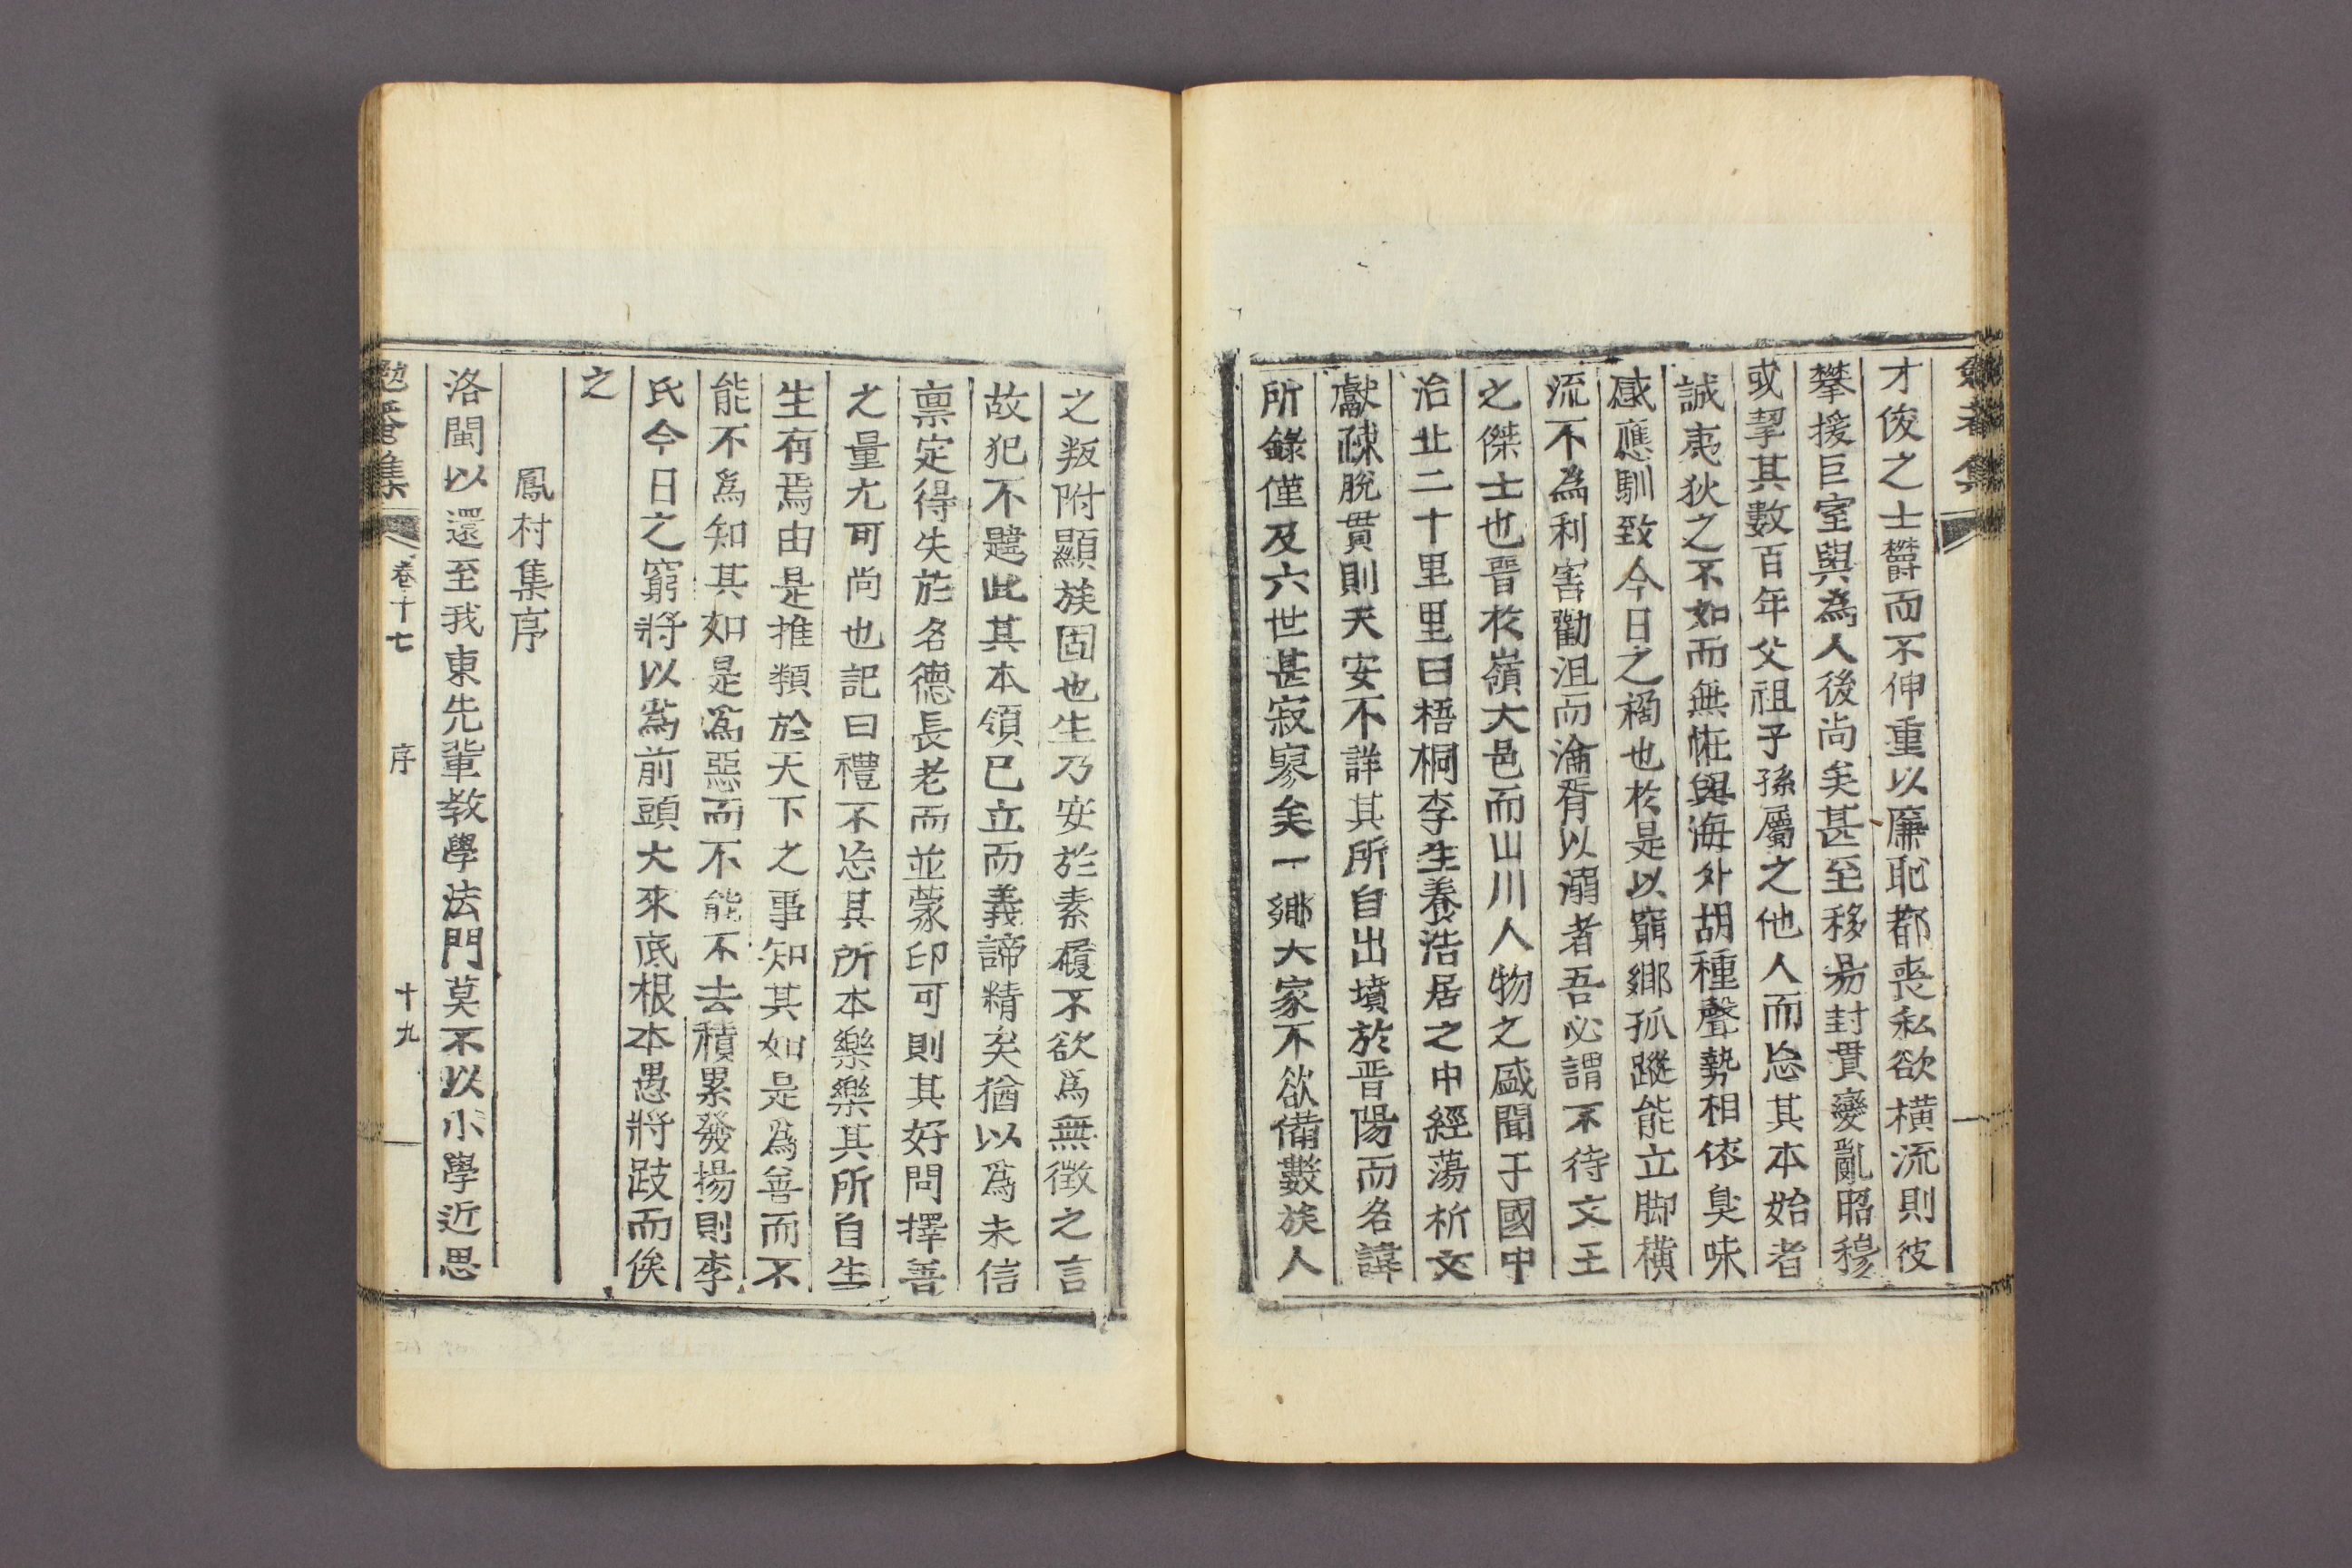 才俊之士欝而不伸重以廉恥都喪私欲橫流則彼
攀援巨室與為人後尚矣甚至移易封貫變亂昭穆
或挈其數百年父祖子孫屬之他人而忘其本始者
誠夷狄之不如而無恠與海外胡種聲勢相依臭味
感應馴致今日之禍也於是以窮鄕孤蹤能立脚橫
流不為利害勸沮而淪胥以溺者吾必謂不待文王
之傑士也晋於嶺大邑而山川人物之盛聞于國中
治北二十里里曰梧桐李生養浩居之中經蕩析文
獻疎脫貫則天安不詳其所自出墳於晋陽而名諱
所錄僅及六世甚寂寥矣一鄕大家不欲備數族人
之叛附顯族固也生乃安於素履不欲爲無徵之言
故犯不韙此其本領已立而義諦精矣猶以爲未信
禀定得失於名德長老而並蒙印可則其好問擇善
之量尤可尚也記曰禮不忘其所本樂樂其所自生
生有焉由是推類於天下之事知其如是爲善而不
能不爲知其如是爲惡而不能不去積累發揚則李
氏今日之窮將以爲前頭大來底根本愚將跂而俟
之
鳳村集序
洛閩以還至我東先輩教學法門莫不以小學近思
勉菴集 卷十七 序 十九